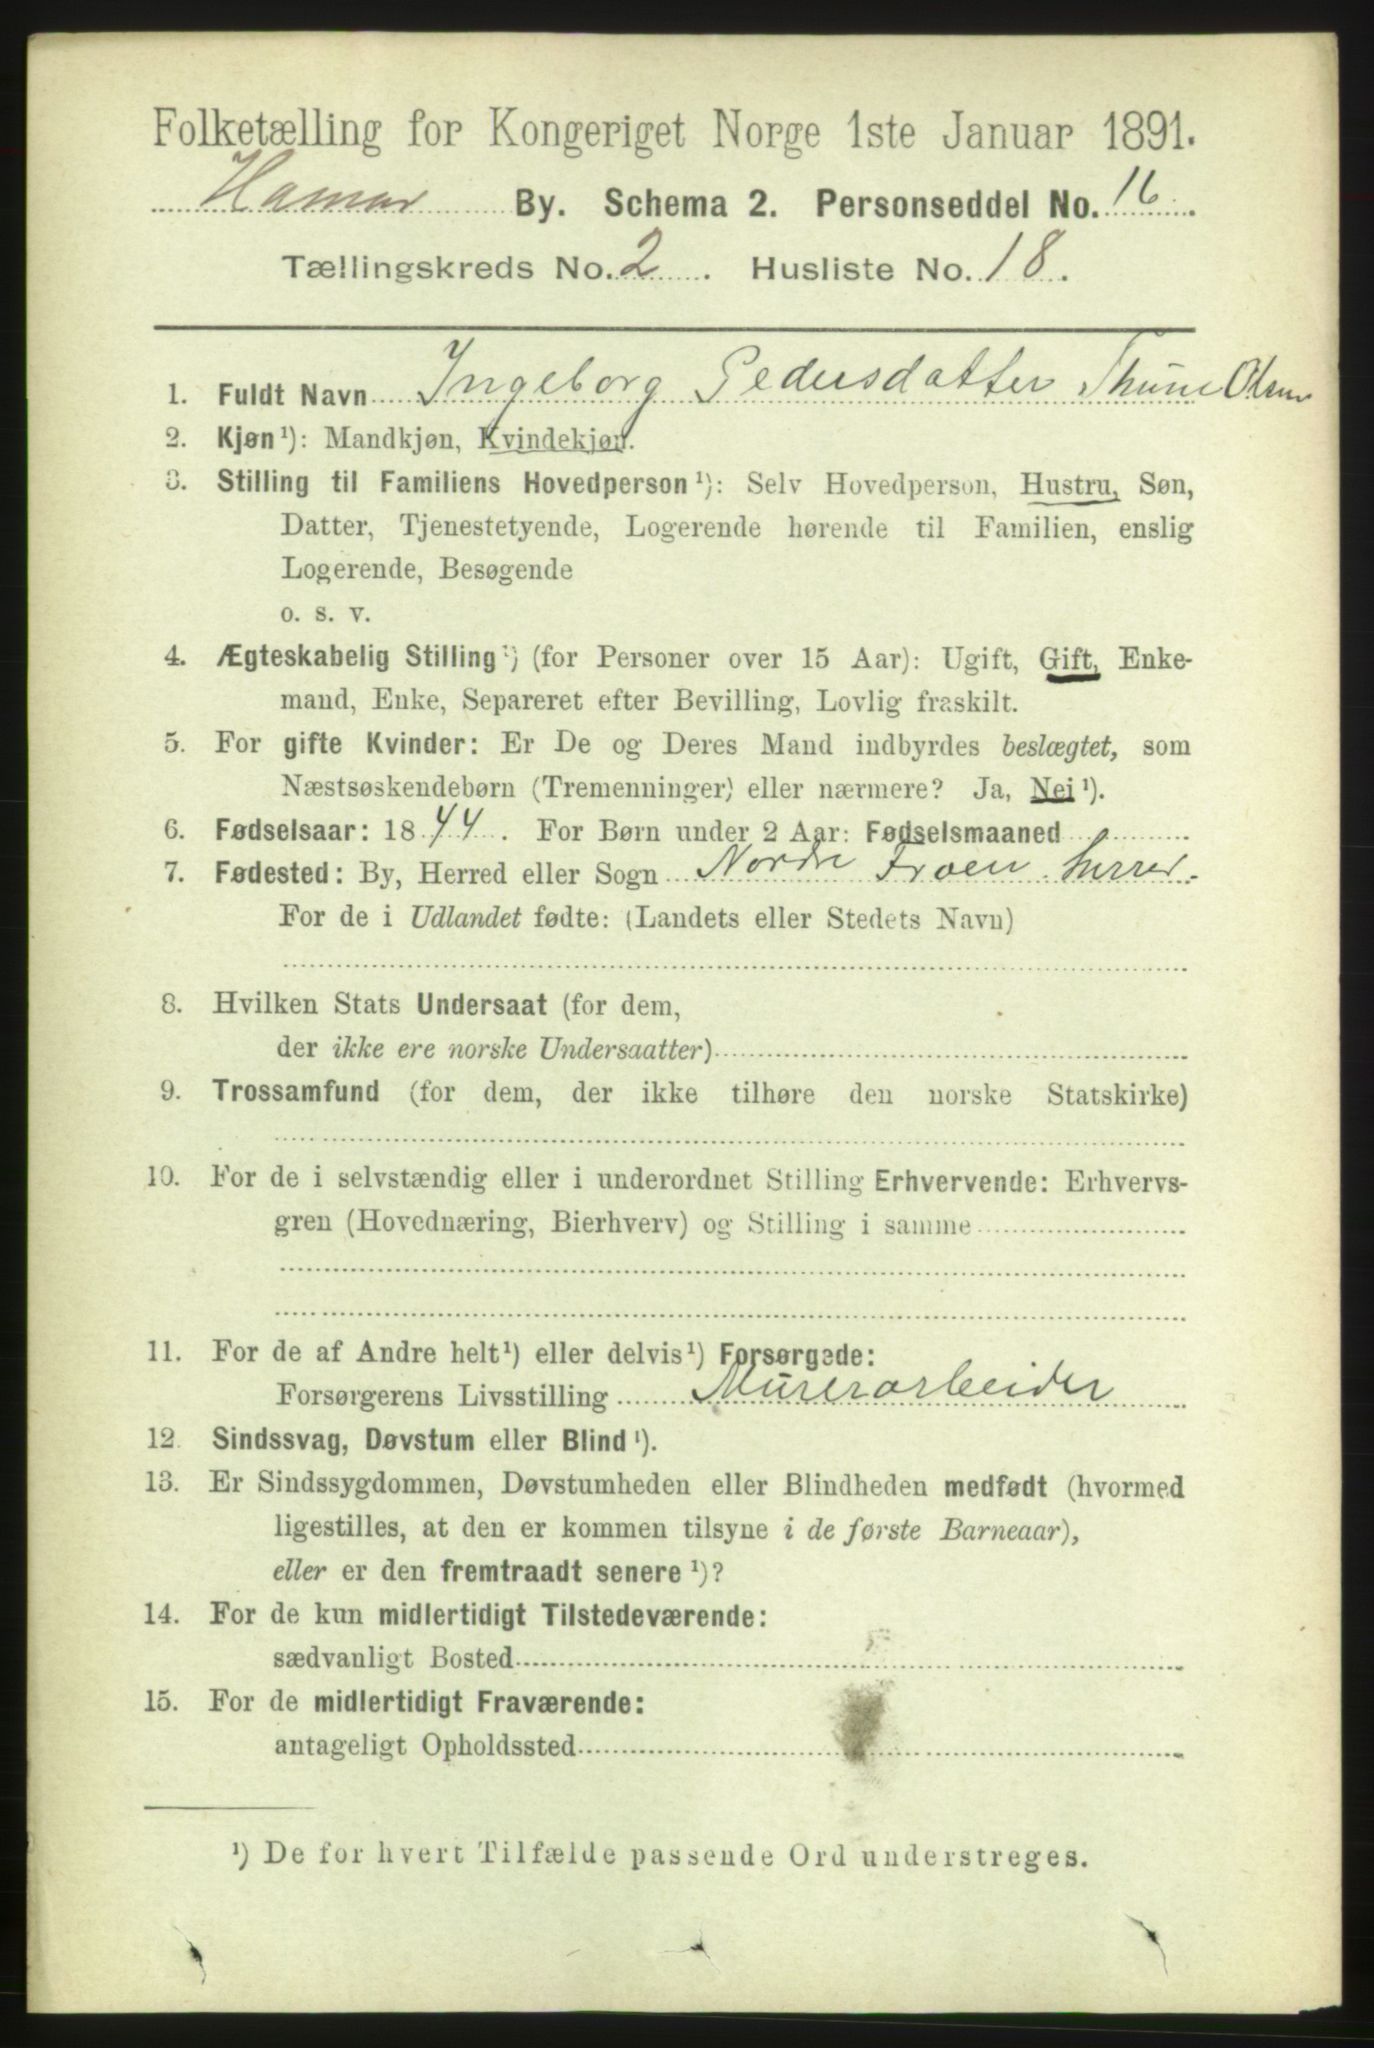 Folketælling for Kongeriget Norge 1ste Januar 1891.
Hamar By. Schema 2. Personseddel No. 16.
Tællingskreds No. 2. Husliste No. 18.
1. Fuldt Navn Ingeborg Pedersdatter Thune Olsen
2. Kjøn ¹): Mandkjøn, Kvindekjøn.
3. Stilling til Familiens Hovedperson ¹): Selv Hovedperson, Hustru, Søn,
Datter, Tjenestetyende, Logerende hørende til Familien, enslig
Logerende, Besøgende
o. s. v.
4. Ægteskabelig Stilling ¹) (for Personer over 15 Aar): Ugift, Gift, Enke-
mand, Enke, Separeret efter Bevilling, Lovlig fraskilt.
5. For gifte Kvinder: Er De og Deres Mand indbyrdes beslægtet, som
Næstsøskendebørn (Tremenninger) eller nærmere? Ja, Nei ¹).
6. Fødselsaar: 1844. For Børn under 2 Aar: Fødselsmaaned
7. Fødested: By, Herred eller Sogn Nordre Froen herred.
For de i Udlandet fødte: (Landets eller Stedets Navn)
8. Hvilken Stats Undersaat (for dem,
der ikke ere norske Undersaatter)
9. Trossamfund (for dem, der ikke tilhøre den norske Statskirke)
10. For de i selvstændig eller i underordnet Stilling Erhvervende: Erhvervs-
gren (Hovednæring, Bierhverv) og Stilling i samme
11. For de af Andre helt ¹) eller delvis ¹) Forsørgede:
Forsørgerens Livsstilling Murerarbeider
12. Sindssvag, Døvstum eller Blind ¹).
13. Er Sindssygdommen, Døvstumheden eller Blindheden medfødt (hvormed
ligestilles, at den er kommen tilsyne i de første Barneaar),
eller er den fremtraadt senere ¹)?
14. For de kun midlertidigt Tilstedeværende:
sædvanligt Bosted
15. For de midlertidigt Fraværende:
antageligt Opholdssted
¹) De for hvert Tilfælde passende Ord understreges.